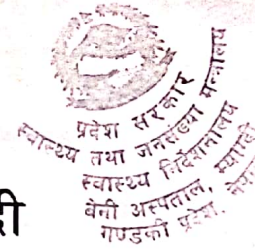 प्रदेश सरकार
स्वास्थ्य तथा जनसंख्या मन्त्रालय
स्वास्थ्य निर्देशनालय
बेनी अस्पताल, म्याग्दी
गण्डकी प्रदेश, नेपाल
दी